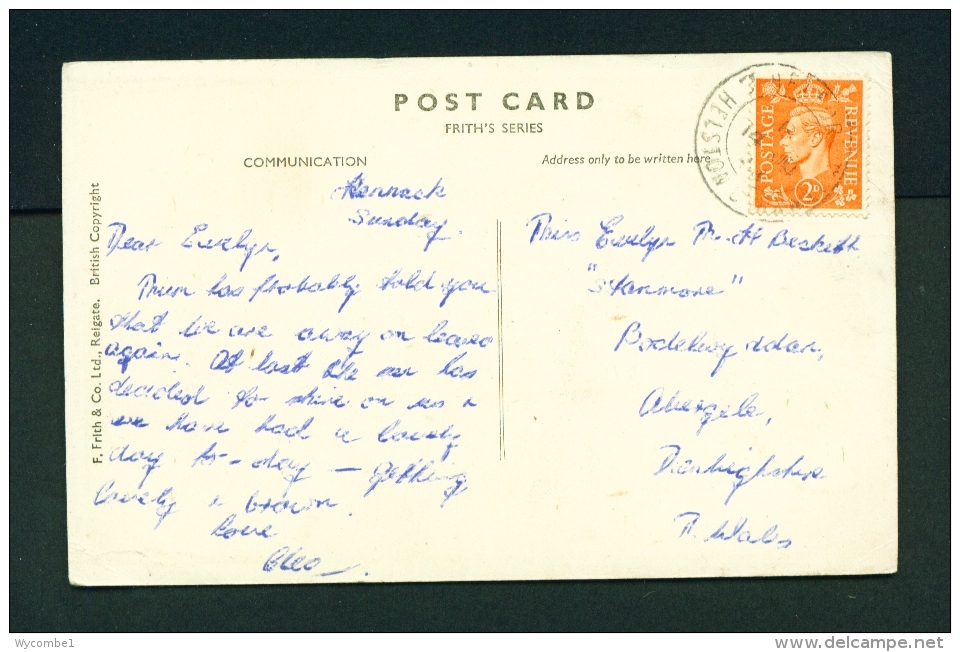 POST CARD
FRITH'S SERIES
COMMUNICATION
Address only to be written here
F. Frith & Co. Ltd., Reigate. British Copyright
Kennack
Sunday.
Dear Evelyn,
Mum has probably told you
that we are away on leave
again. At last the sun has
decided to shine on us &
we have had a lovely
day to-day — getting
lovely & brown.
Love
Cleo.
Miss Evelyn Beckett
"Stanmore"
Bodelwyddan,
Abergele,
Denbighshire
N. Wales
POSTAGE
REVENUE
2D
HELSTON
Wycombe1
delcampe.net